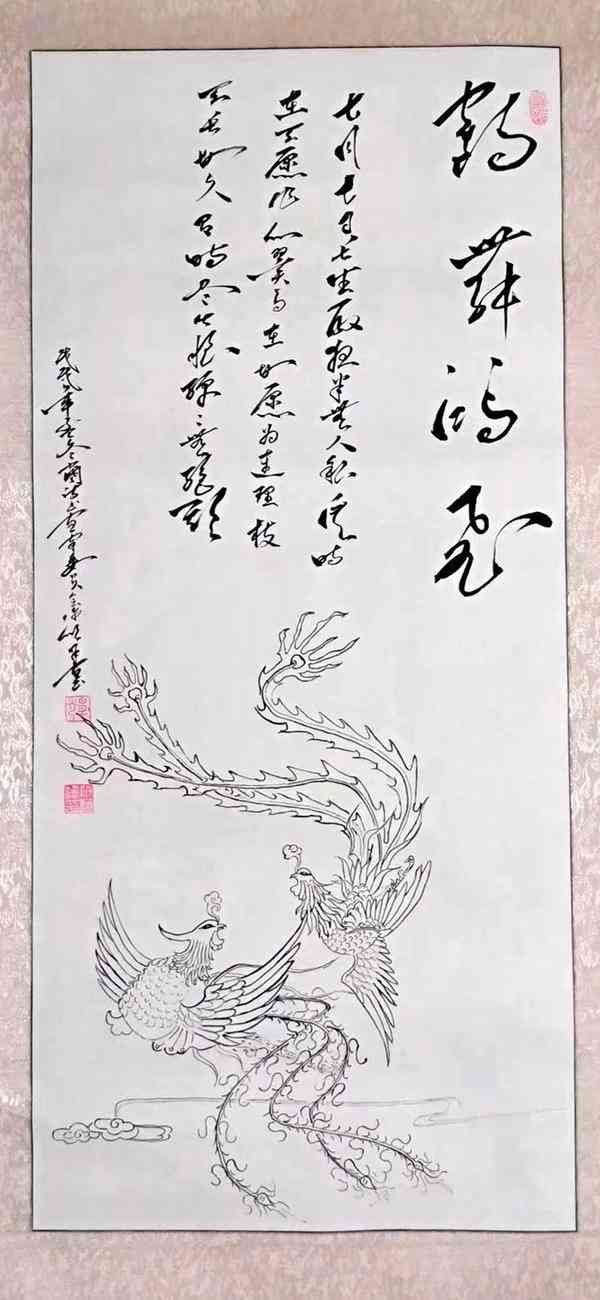 鹤舞鸿飞
七月七日长生殿夜半無人私语时
在天愿作比翼鸟在地愿为连理枝
天长地久有时尽此恨绵々无绝期
戊戌年